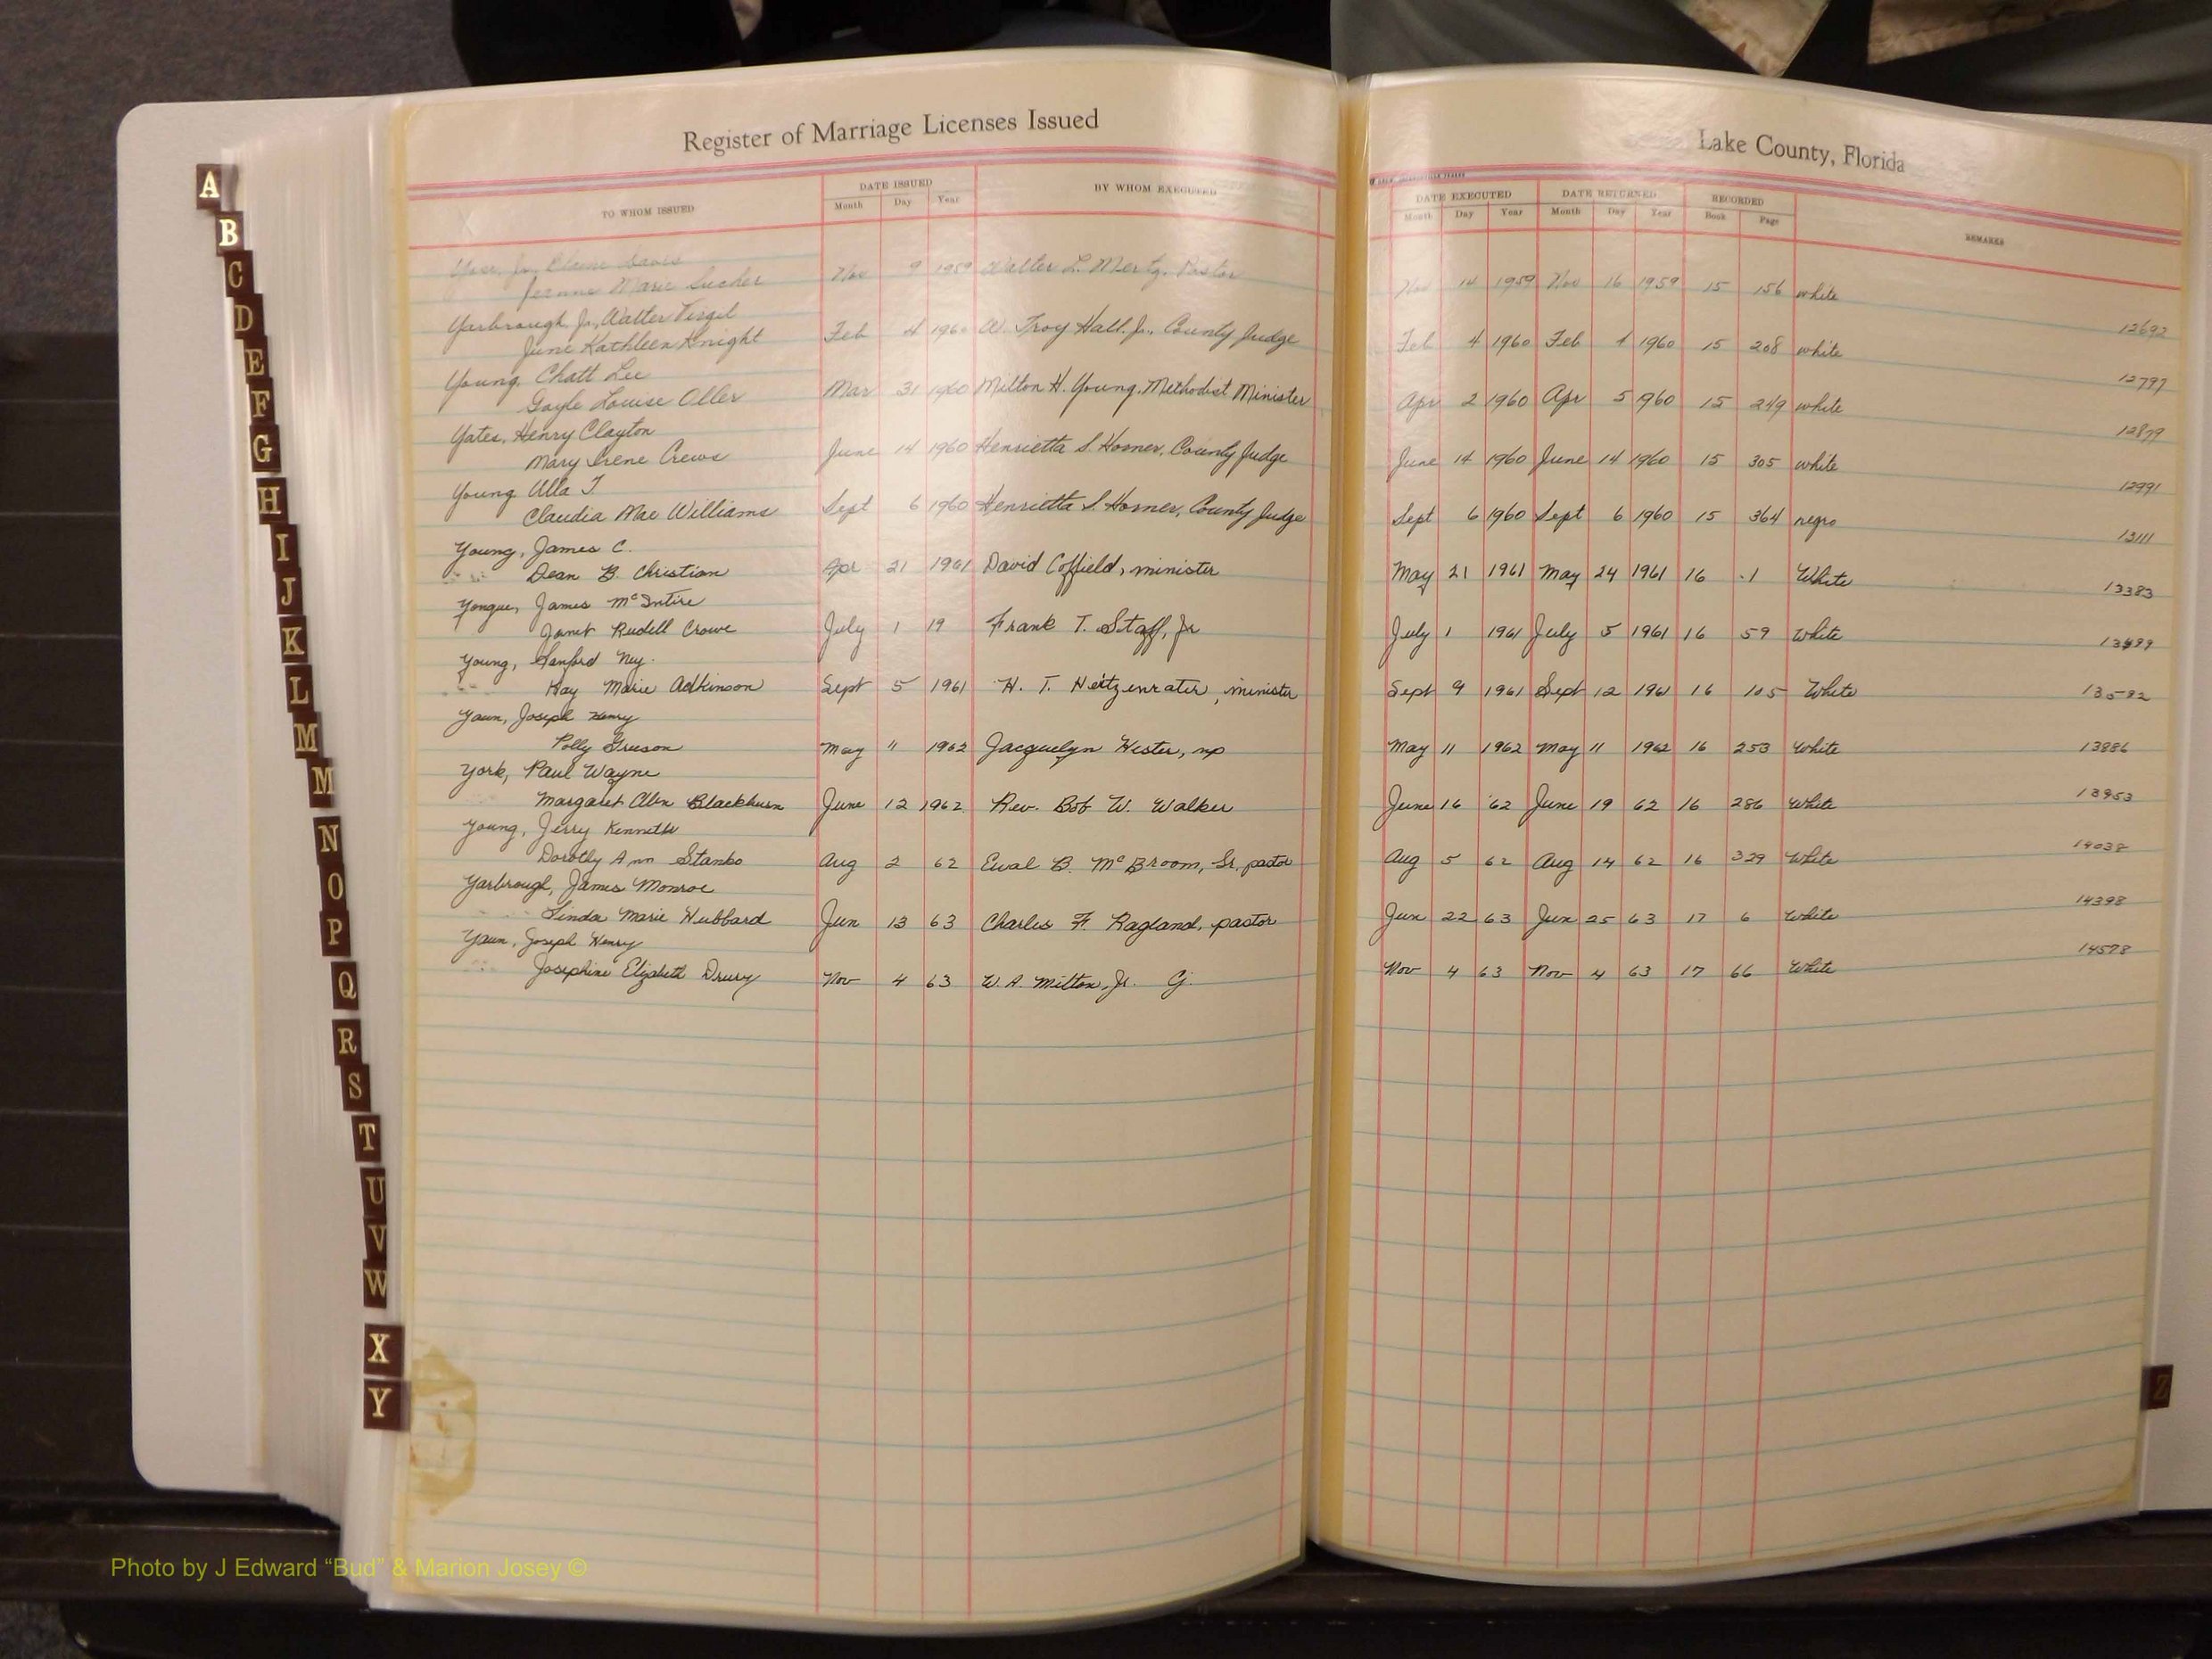 Register of Marriage Licenses Issued
Lake County, Florida
TO WHOM ISSUED DATE ISSUED BY WHOM EXECUTED DATE EXECUTED DATE RETURNED RECORDED REMARKS
Month Day Year Month Day Year Month Day Year Book Page
Jr,
Jeanne Marie Nov 9 1959 Walter L. Mertz, Pastor Nov 14 1959 Nov 16 1959 15 156 white
12692
Yarbrough, Jr., Walter Virgil
June Kathleen Knight Feb 4 1960 W. Troy Hall, Jr., County Judge Feb 4 1960 Feb 4 1960 15 208 white
12797
Young, Chatt Lee
Gayle Louise Oller Mar 31 1960 Milton H. Young, Methodist Minister Apr 2 1960 Apr 5 1960 15 249 white
12879
Yates, Henry Clayton
Mary Irene Crews June 14 1960 Henrietta S. Horner, County Judge June 14 1960 June 14 1960 15 305 white
12991
Young, Ulla J.
Claudia Mae Williams Sept 6 1960 Henrietta S. Horner, County Judge Sept 6 1960 Sept 6 1960 15 364 negro
13111
Young, James C.
Dean B. Christian Apr 21 1961 David Coffield, minister May 21 1961 May 24 1961 16 1 White
13383
Yongue, James McIntire
Janet Rudell Crowe July 1 19 Frank T. Staff, Jr July 1 1961 July 5 1961 16 59 White
13499
Young, Sanford Ney
Kay Marie Adkinson Sept 5 1961 H. T. Heitzenrater, minister Sept 9 1961 Sept 12 1961 16 105 White
13592
Yaun, Joseph Henry
Polly May 11 1962 Jacquelyn Hester, np May 11 1962 May 11 1962 16 253 White
13886
York, Paul Wayne
Margaret Blackburn June 12 1962 Rev. Bob W. Walker June 16 '62 June 19 62 16 286 White
13953
Young, Jerry Kenneth
Dorothy Ann Stanko Aug 2 62 Eual B. McBroom, Sr. pastor Aug 5 62 Aug 14 62 16 329 White
14038
Yarbrough, James Monroe
Linda Marie Hubbard Jun 13 63 Charles F. Ragland, pastor Jun 22 63 Jun 25 63 17 6 White
14398
Yaun, Joseph Henry
Josephine Elizabeth Drury Nov 4 63 W. A. Milton, Jr. Cj. Nov 4 63 Nov 4 63 17 66 White
14578
A
B
C
D
E
F
G
H
I
J
K
L
M
M
N
O
P
Q
R
S
T
U
V
W
X
Y
Z
Photo by J Edward “Bud” & Marion Josey ©